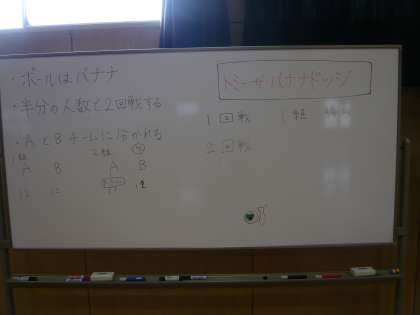 ・ボールはバナナ
・半分の人数で2回戦する
・AとBチームに分かれる
1組 2組
A B A B
12 12 12
トミーザ・バナナドッジ
1回戦 1組
2回戦